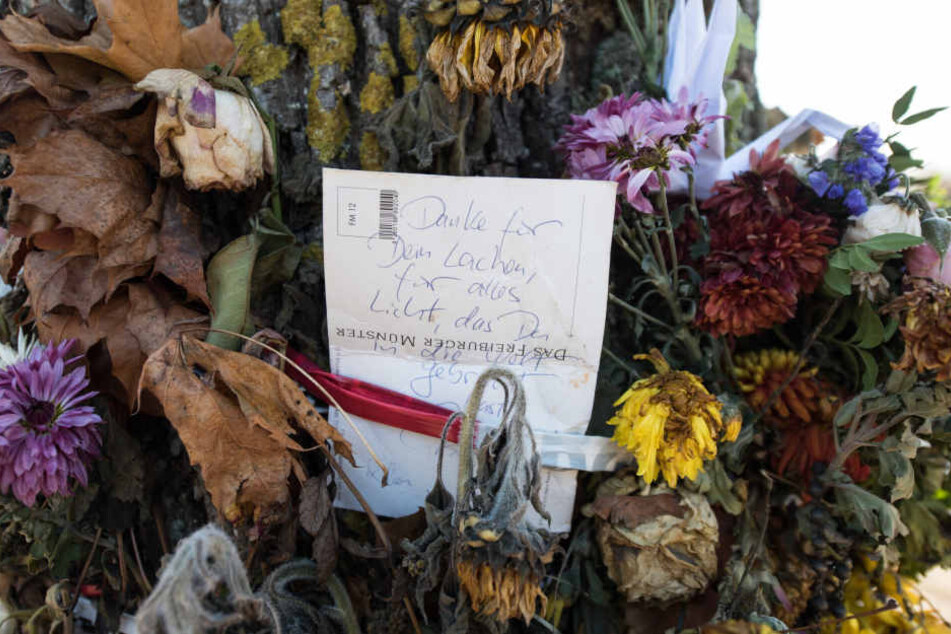 FM 12
Danke für
Dein Lachen,
für alles
Licht, das Du
in die Welt
DAS FREIBURGER MÜNSTER